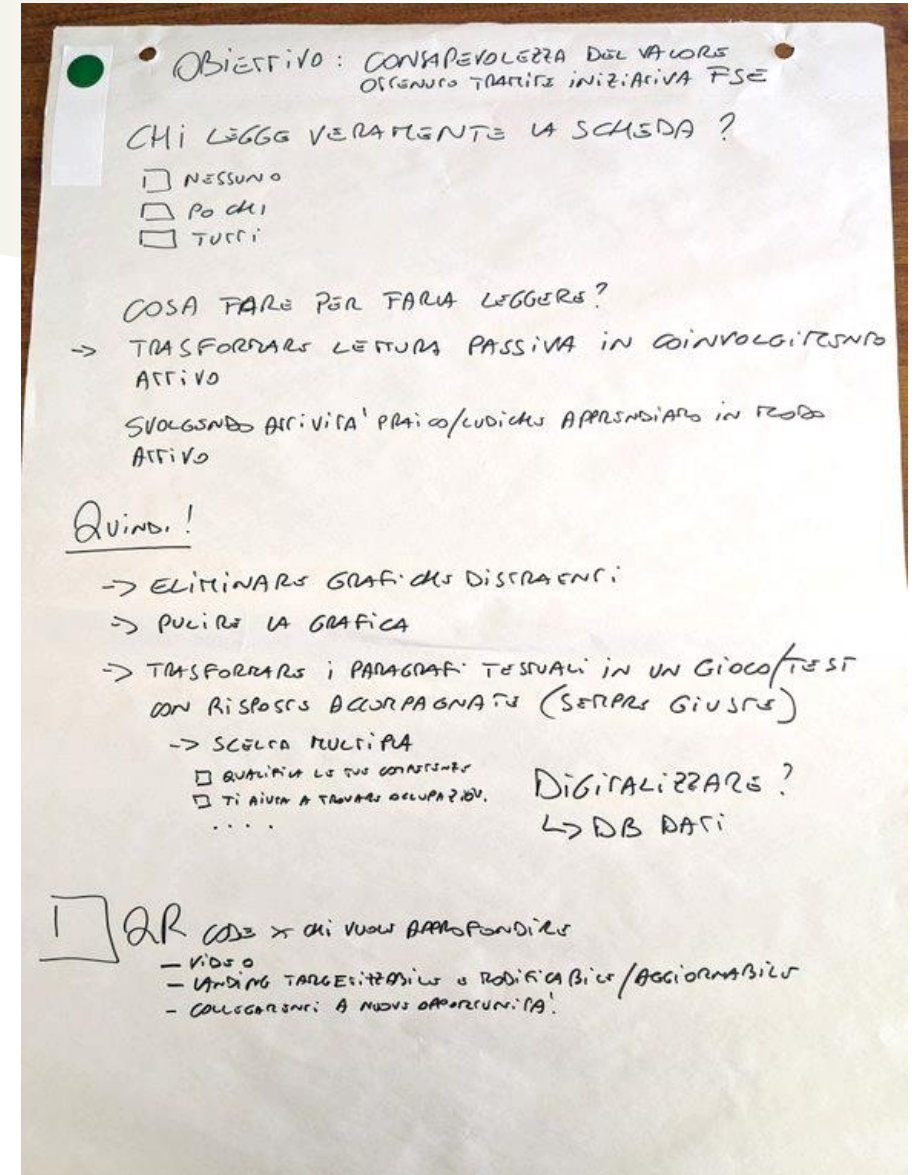 OBIETTIVO: CONSAPEVOLEZZA DEL VALORE
OTTENUTO TRAMITE INIZIATIVA FSE
CHI LEGGE VERAMENTE LA SCHEDA?
NESSUNO
POCHI
TUTTI
COSA FARE PER FARLA LEGGERE?
-> TRASFORMARE LETTURA PASSIVA IN COINVOLGIMENTO
ATTIVO
SVOLGENDO ATTIVITA' PRATICO/LUDICHE APPRENDIAMO IN MODO
ATTIVO
QUINDI!
-> ELIMINARE GRAFICHE DISTRAENTI
-> PULIRE LA GRAFICA
-> TRASFORMARE I PARAGRAFI TESTUALI IN UN GIOCO/TEST
CON RISPOSTE ACCOMPAGNATE (SEMPRE GIUSTE)
-> SCELTA MULTIPLA
QUALIFICA LE TUE COMPETENZE
TI AIUTA A TROVARE OCCUPAZION.
....
DIGITALIZZARE?
-> DB DATI
QR CODE X CHI VUOLE APPROFONDIRE
- VIDEO
- LANDING TARGETIZZABILE E MODIFICABILE/AGGIORNABILE
- COLLEGAMENTI A NUOVE OPPORTUNITA'